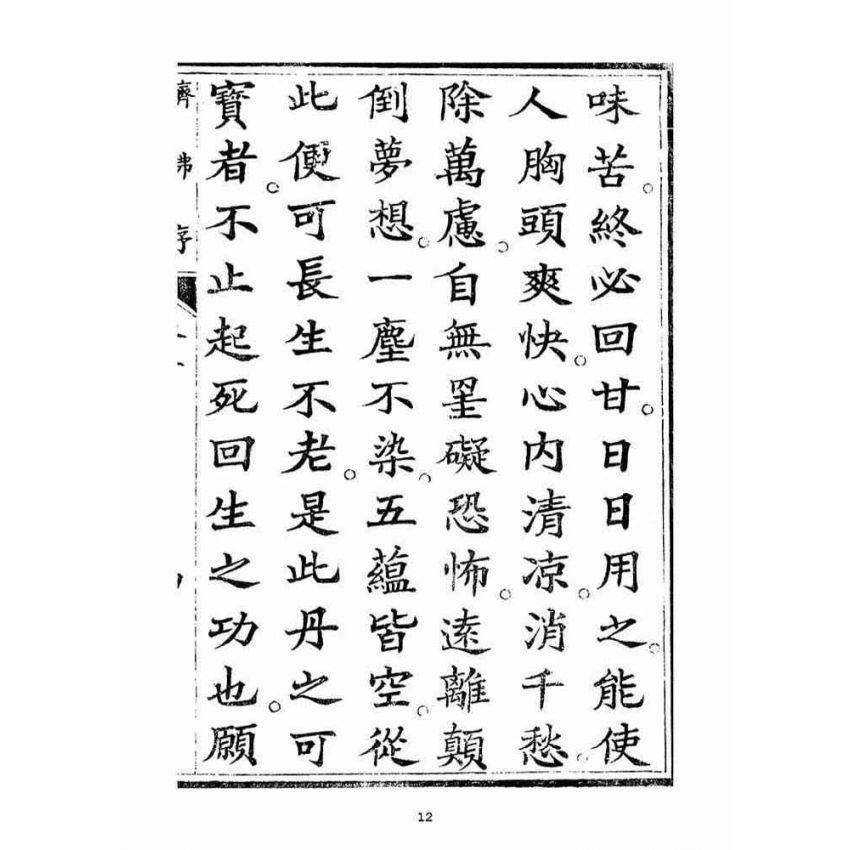 味苦。終必回甘。日日用之。能使
人胸頭爽快。心内清凉。消千愁。
除萬慮。自無罣礙恐怖。遠離顛
倒夢想。一塵不染。五蘊皆空。從
此便可長生不老。是此丹之可
寶者。不止起死回生之功也。願
濟佛序
12